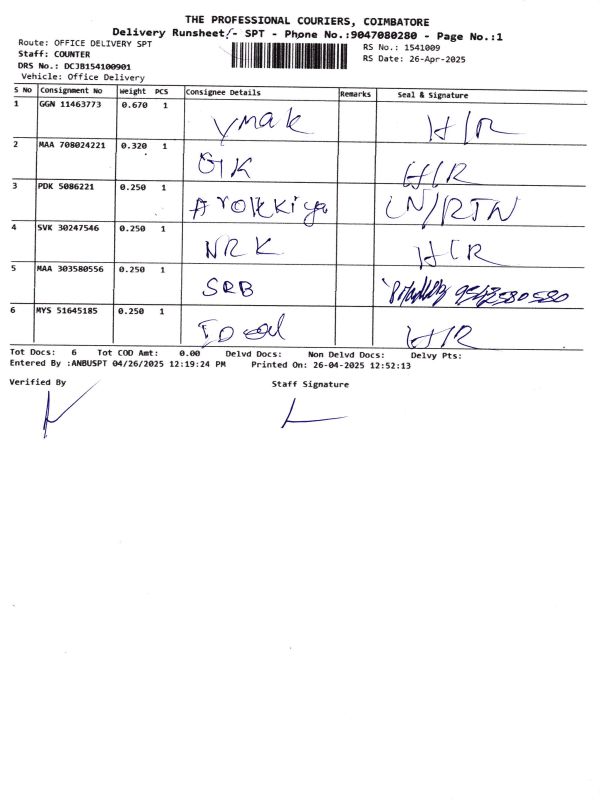 THE PROFESSIONAL COURIERS, COIMBATORE
Delivery Runsheet:- SPT - Phone No.:9047080280 - Page No.:1
Route: OFFICE DELIVERY SPT
Staff: COUNTER
DRS No.: DCJB154100901
Vehicle: Office Delivery
RS No.: 1541009
RS Date: 26-Apr-2025
S No Consignment No Weight PCS Consignee Details Remarks Seal & Signature
1 GGN 11463773 0.670 1 ymak H/R
2 MAA 708024221 0.320 1 GIK H/R
3 PDK 5086221 0.250 1 Arokkiya UN/RTN
4 SVK 30247546 0.250 1 NRK H/R
5 MAA 303580556 0.250 1 SRB 9543580580
6 MYS 51645185 0.250 1 Ideal H/R
Tot Docs: 6 Tot COD Amt: 0.00 Delvd Docs: Non Delvd Docs: Delvy Pts:
Entered By :ANBUSPT 04/26/2025 12:19:24 PM Printed On: 26-04-2025 12:52:13
Verified By Staff Signature